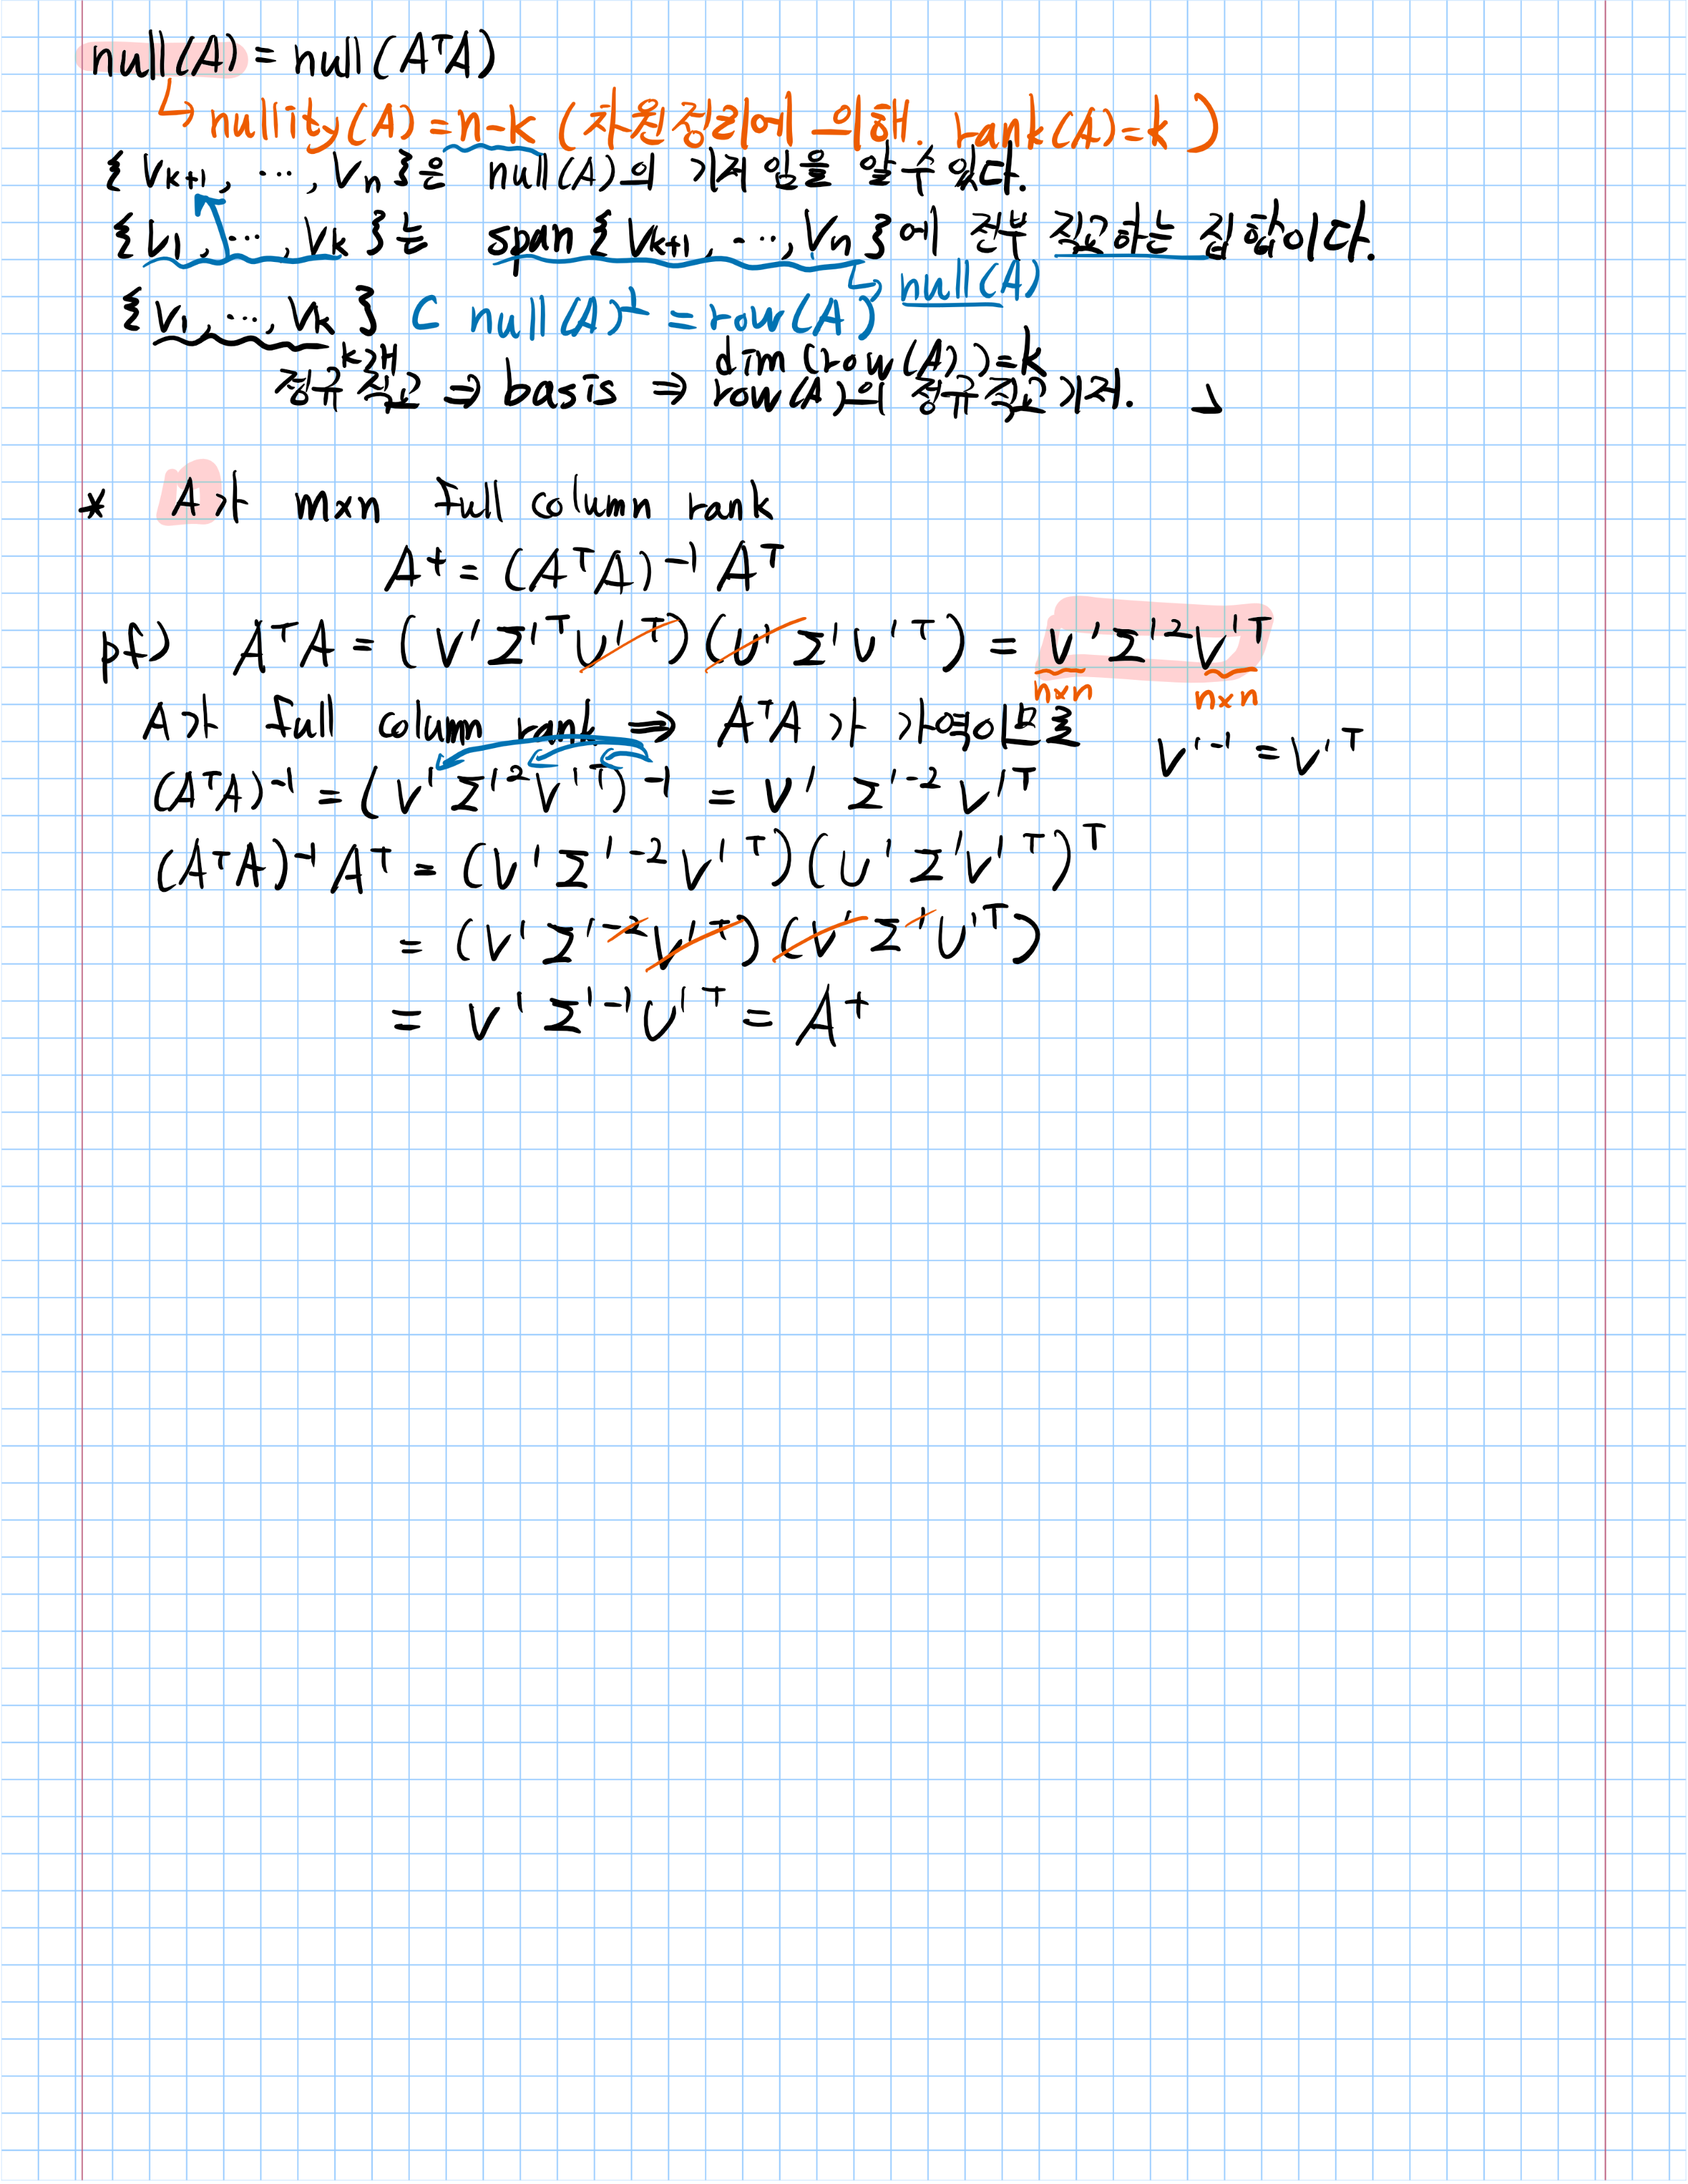 null(A) = null(AᵀA)
↳ nullity(A) = n-k (차원정리에 의해. rank(A)=k)
{ V_{k+1}, ⋯, V_n }은 null(A)의 기저임을 알 수 있다.
{ V_1, ⋯, V_k }는 span{ V_{k+1}, ⋯, V_n }에 전부 직교하는 집합이다.
↳ null(A)
{ V_1, ⋯, V_k } ⊂ null(A)^⊥ = row(A)
k개 dim(row(A))=k
정규직교 ⇒ basis ⇒ row(A)의 정규직교기저. 」
* A가 m×n full column rank
A⁺ = (AᵀA)⁻¹Aᵀ
pf) AᵀA = (V'Σ'ᵀU'ᵀ)(U'Σ'V'ᵀ) = V'Σ'²V'ᵀ
n×n n×n
A가 full column rank ⇒ AᵀA가 가역이므로
V'⁻¹ = V'ᵀ
(AᵀA)⁻¹ = (V'Σ'²V'ᵀ)⁻¹ = V'Σ'⁻²V'ᵀ
(AᵀA)⁻¹Aᵀ = (V'Σ'⁻²V'ᵀ)(U'Σ'V'ᵀ)ᵀ
= (V'Σ'⁻²V'ᵀ)(V'Σ'U'ᵀ)
= V'Σ'⁻¹U'ᵀ = A⁺